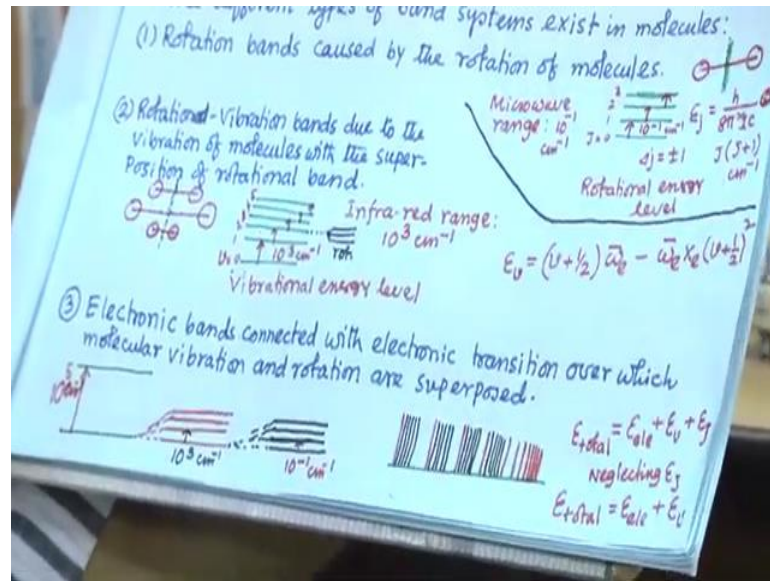 different types of band systems exist in molecules:
(1) Rotation bands caused by the rotation of molecules.
Microwave
range: 10⁻¹
cm⁻¹
3
2
1
J=0
10⁻¹ cm⁻¹
Δj = ±1
εj = h/8π²Ic
J(J+1)
cm⁻¹
Rotational energy
level
(2) Rotational-Vibration bands due to the
vibration of molecules with the super-
Position of rotational band.
5
1
υ=0
10³ cm⁻¹
rot
Infra-red range:
10³ cm⁻¹
Vibrational energy level
ευ = (υ+1/2) ω̄e − ω̄e xe (υ+1/2)²
③ Electronic bands connected with electronic transition over which
molecular vibration and rotation are superposed.
10⁵ cm⁻¹
10³ cm⁻¹
10⁻¹ cm⁻¹
εtotal = εele + ευ + εJ
Neglecting εJ
εtotal = εele + ευ